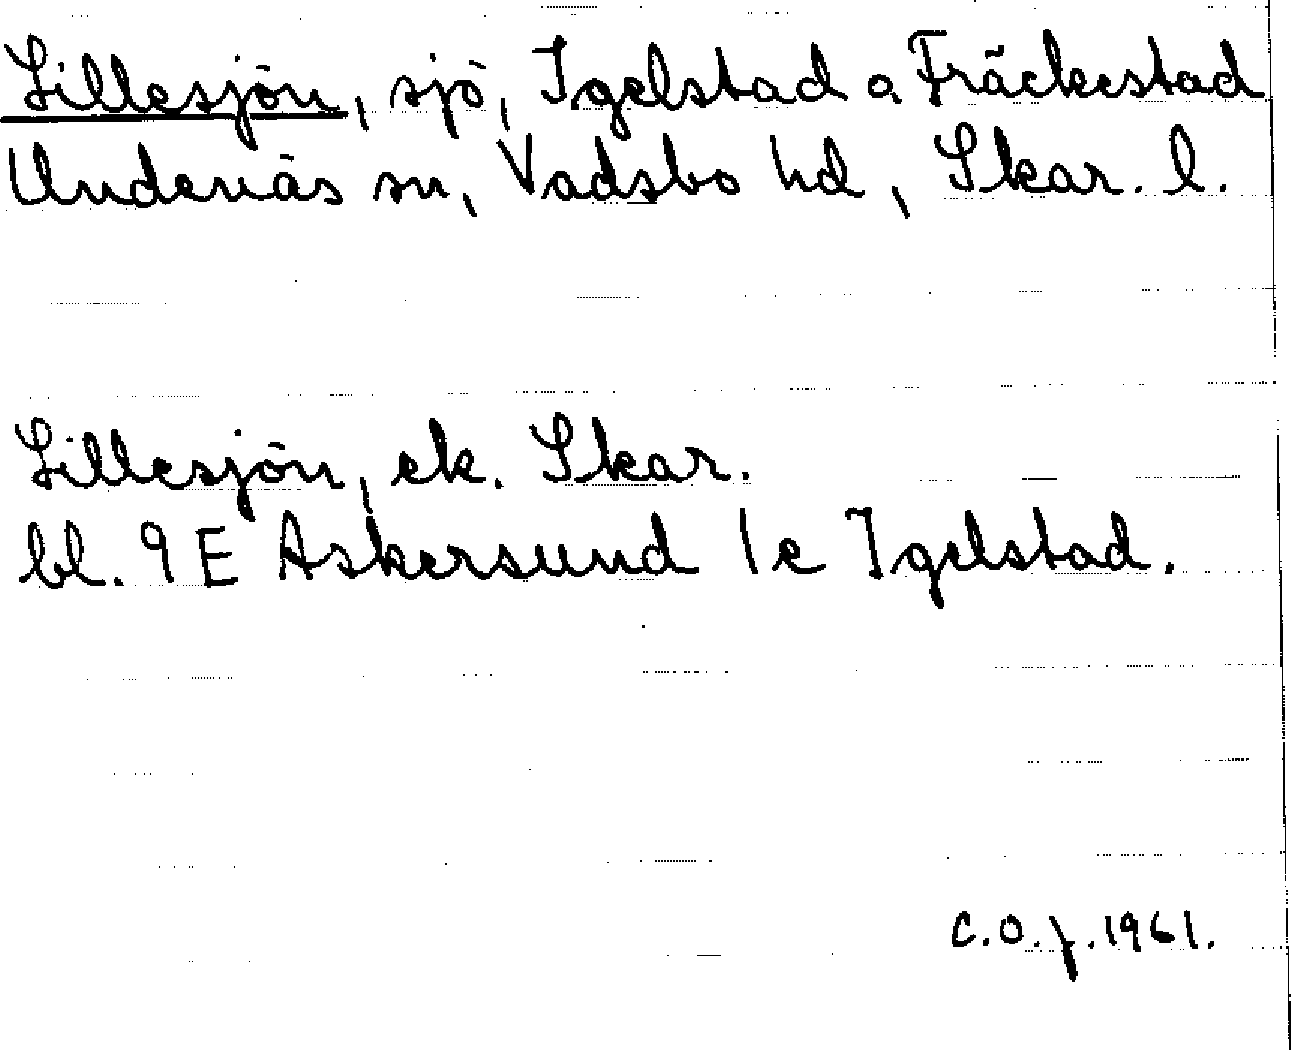 Lillesjön, sjö, Igelstad o. Fräckestad
Undenäs sn, Vadsbo hd, Skar. l.
Lillesjön, ek. Skar.
bl. 9 E Askersund 1 e Igelstad.
C.O.f. 1961.